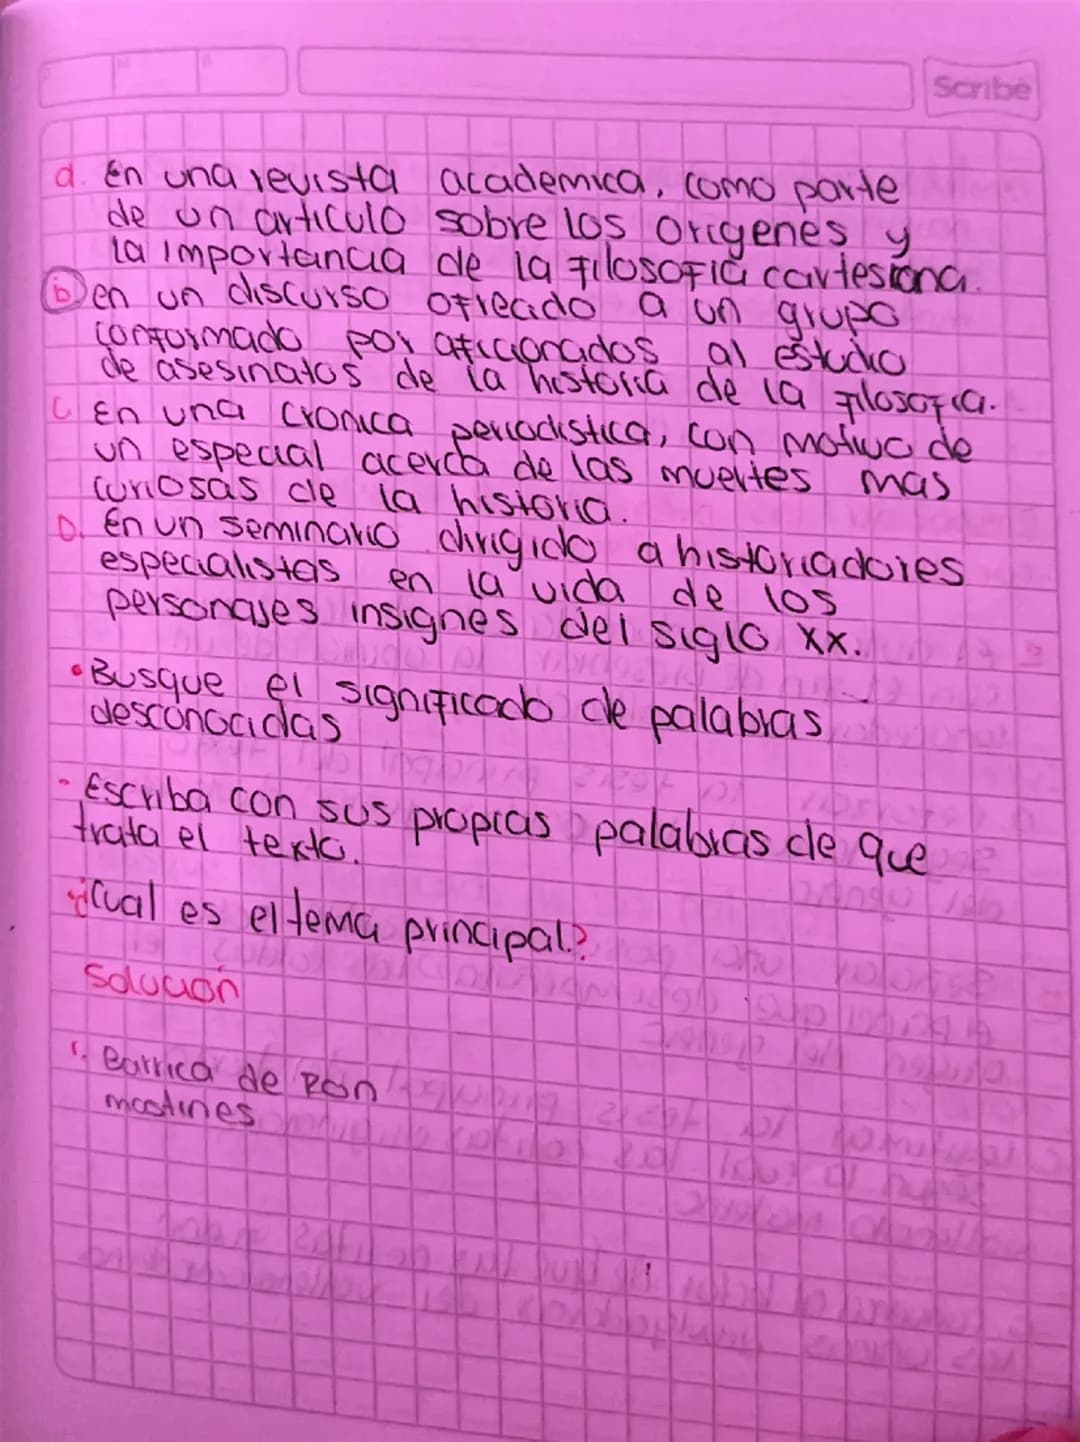 Scribe
a. En una revista academica, como parte
de un articulo sobre los origenes y
la importancia de la filosofia cartesiana.
b en un discurso ofrecido a un grupo
conformado por aficionados al estudio
de asesinatos de la historia de la filosofia.
C En una cronica periodistica, con motivo de
un especial acerca de las muertes mas
curiosas de la historia.
D. En un seminario dirigido a historiadores
especialistas en la vida de los
personajes insignes del siglo xx.
• Busque el significado de palabras
desconocidas
- Escriba con sus propias palabras de que
trata el texto.
- ¿Cual es el tema principal?
Solución
1. Barrica de Ron
mastines